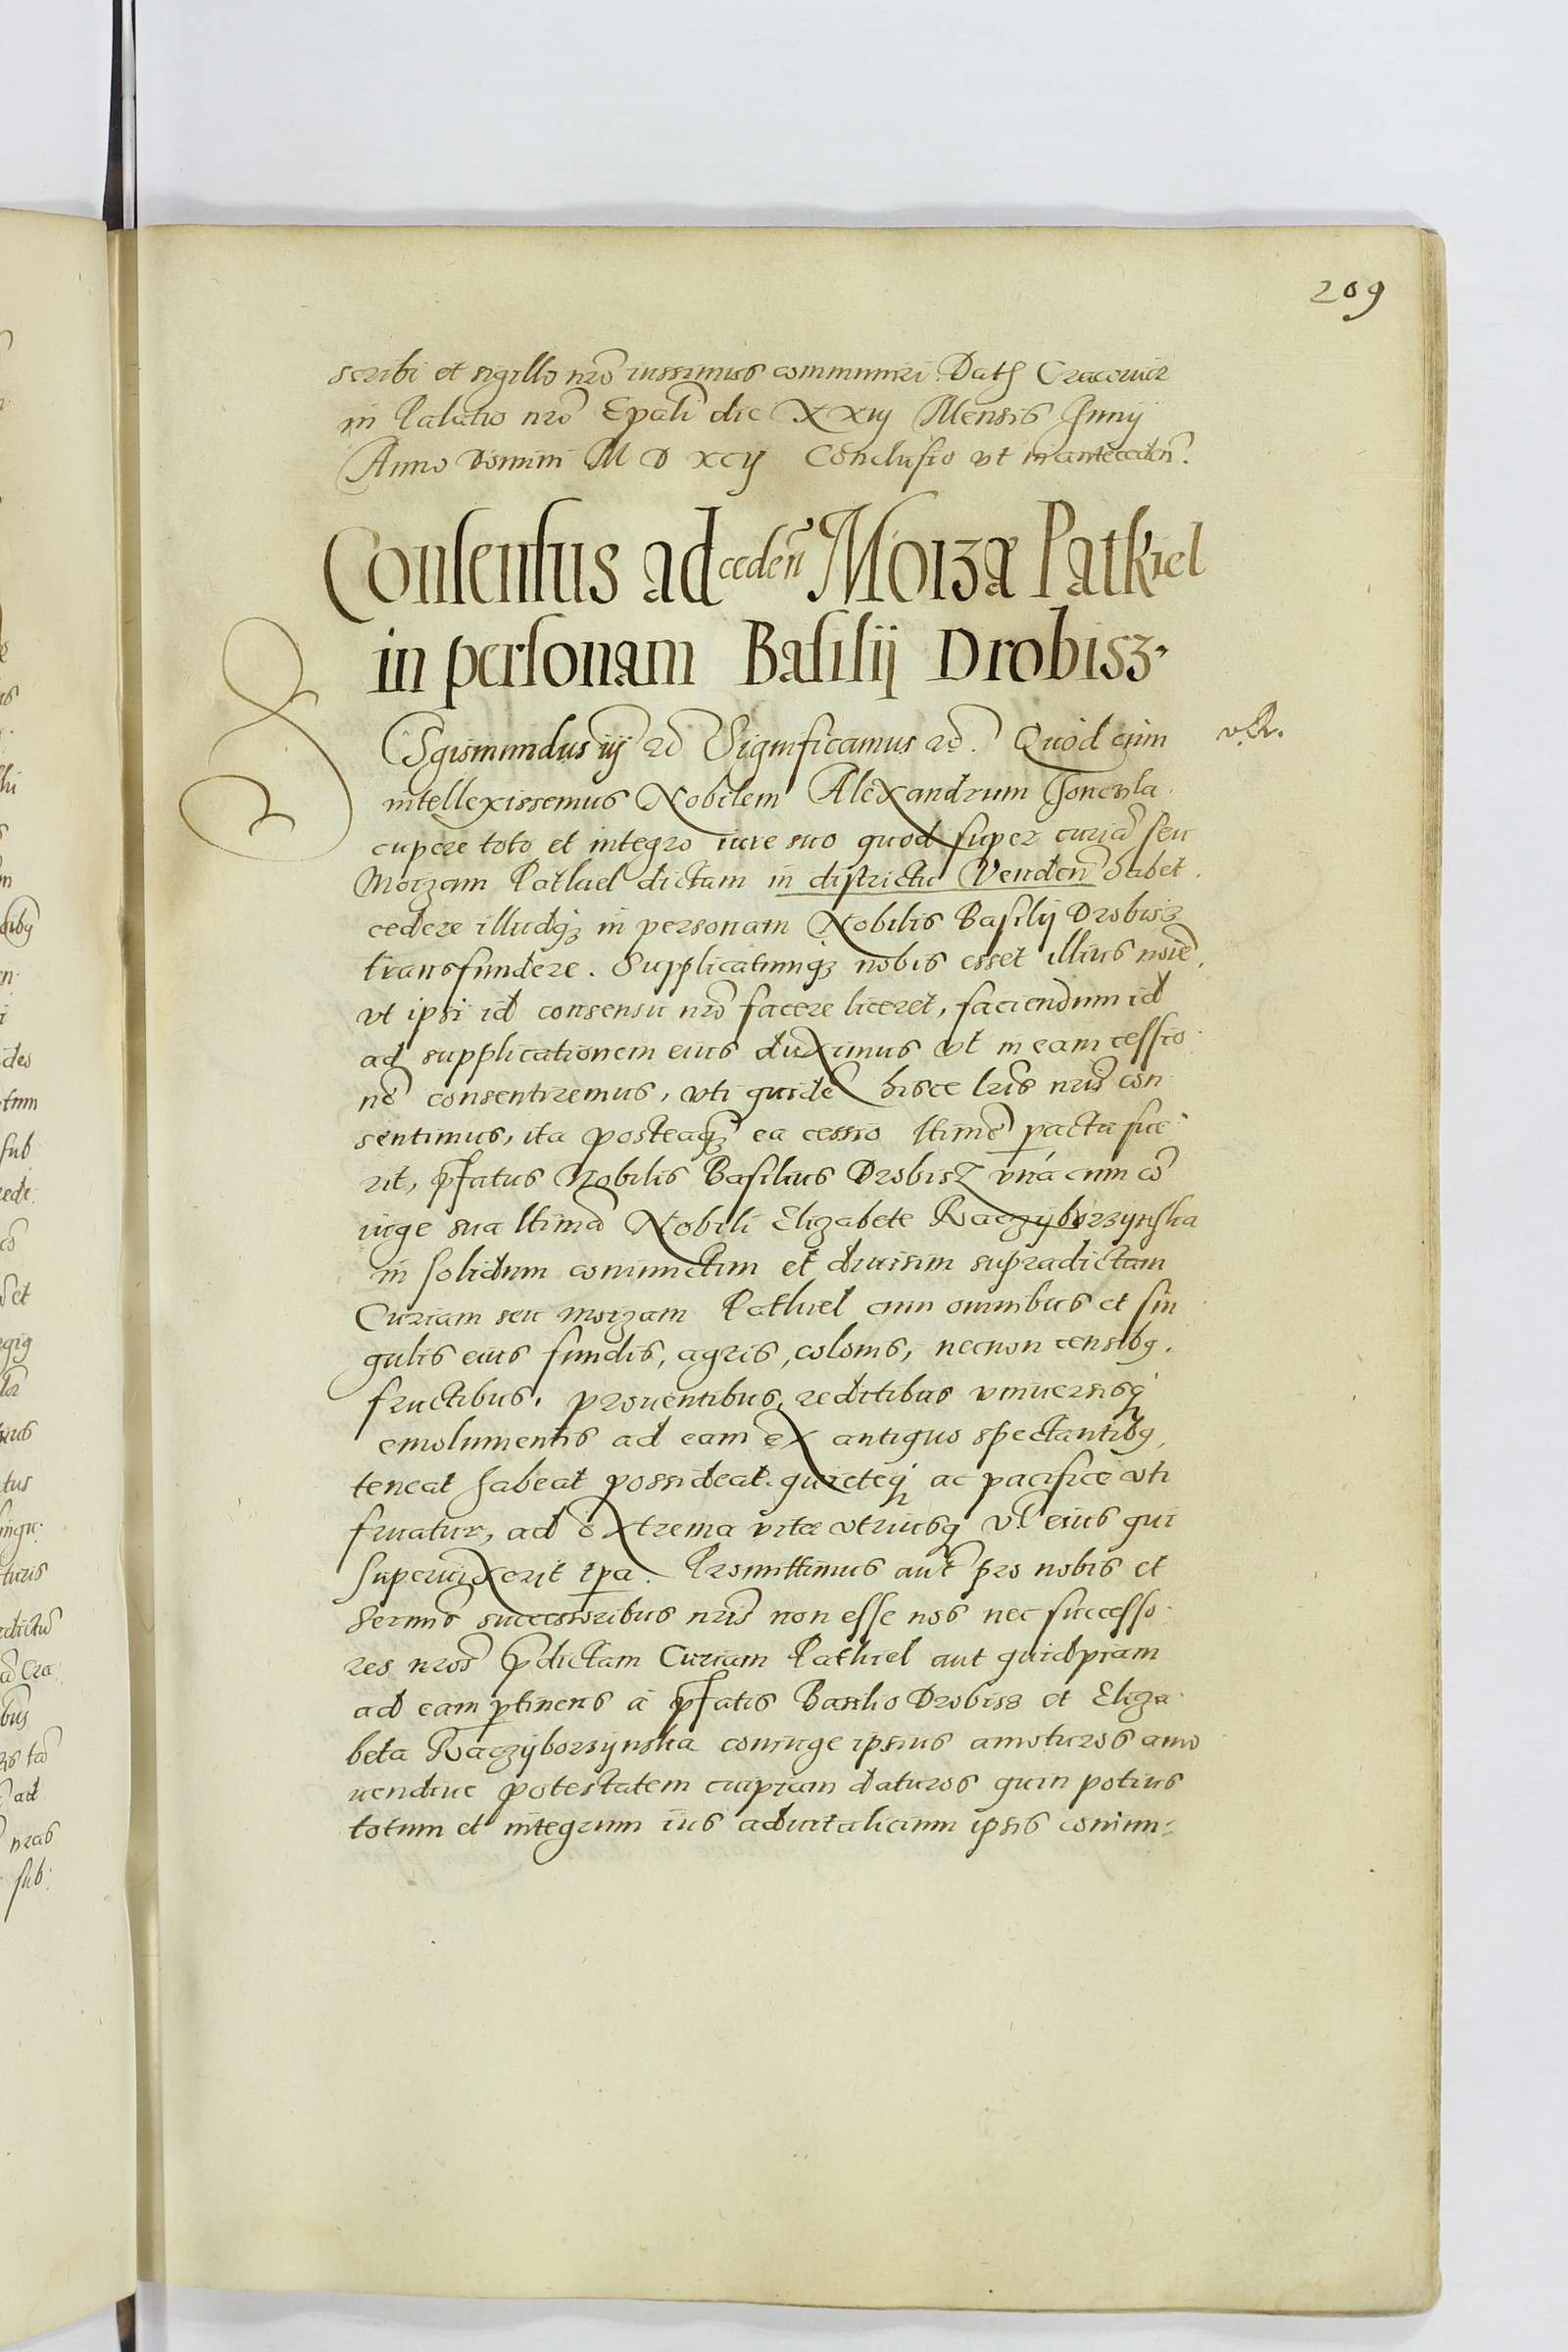 209
scribi et sigillo nrõ iussimus communiri. Dat Cracoviæ
in Palatio nrõ Epali die XXIIJ Mensis Junij
Anno Domini M D XCIJ Conclusio vt in anteceden.
Consensus ad ceden Moiza Patkiel
in personam Basilij Drobisz.
Sigismundus iij etc Significamus etc. Quod cum
v. R.
intellexissemus Nobilem Alexandrum
cupere toto et integro iure suo quod super curiã seu
Moizam Patkiel dictam in districtu Venden habet
cedere illudq3 in personam Nobilis Basilij Drobisz
transfundere. Supplicatumq3 nobis esset illius noie,
vt ipsi id consensu nrõ facere liceret, faciendum id
ad supplicationem eius duximus vt in eam cessio
nẽ consentiremus, vti quidẽ hisce lris nris con
sentimus, ita posteaq ea cessio ltimẽ pacta fue
rit, pfatus Nobilis Basilius Drobisz vná cum cõ
iuge sua ltimã Nobili Elizabete Raczyborzynska
in solidum coniunctim et diuisim supradictam
Curiam seu moizam Patkiel cum omnibus et sin
gulis eius fundis, agris, colonis, necnon censibq,
fructibus, prouentibus, reditibus vniuersisq
emolumentis ad eam ex antiquo spectantibq,
teneat habeat possideat quieteq ac pacifice vti
fruatur, ad extrema vitæ vtriusq vl eius qui
superuixerit tpa. Promittimus aut pro nobis et
Sermis successoribus nris non esse nos nec successo
res nros pdictam Curiam Patkiel aut quidpiam
ad eam ptinens á pfatis Basilio Drobisz et Eliza
beta Raczyborzynska coniuge ipsius amoturos amo
uendiue potestatem cuipiam daturos quin potius
totum et integrum ius aduitalicium ipsis coniun=